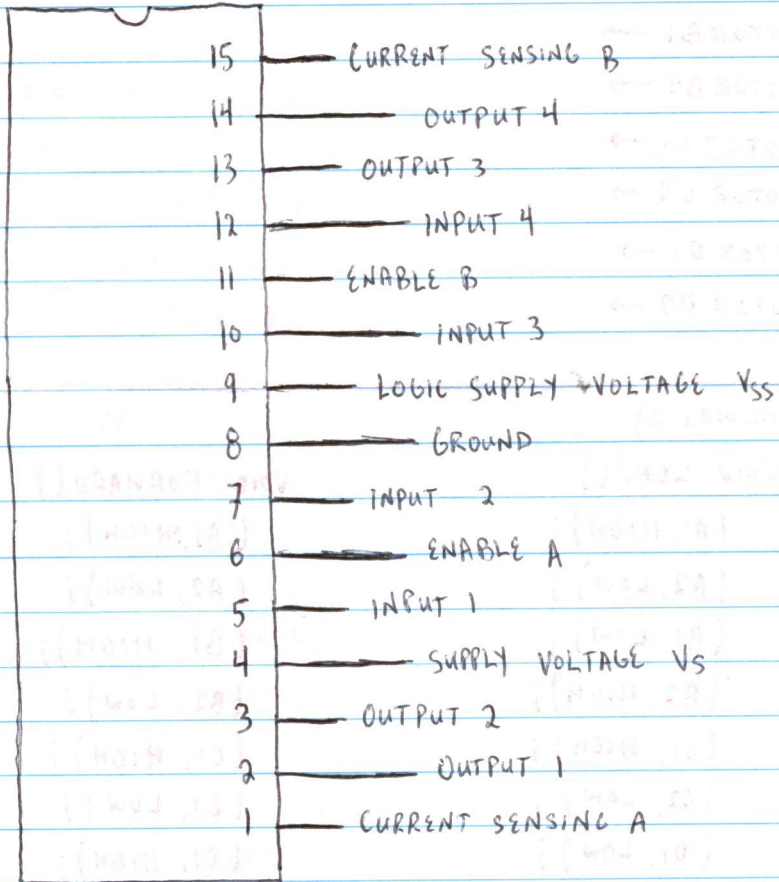 15 CURRENT SENSING B
14 OUTPUT 4
13 OUTPUT 3
12 INPUT 4
11 ENABLE B
10 INPUT 3
9 LOGIC SUPPLY VOLTAGE VSS
8 GROUND
7 INPUT 2
6 ENABLE A
5 INPUT 1
4 SUPPLY VOLTAGE VS
3 OUTPUT 2
2 OUTPUT 1
1 CURRENT SENSING A